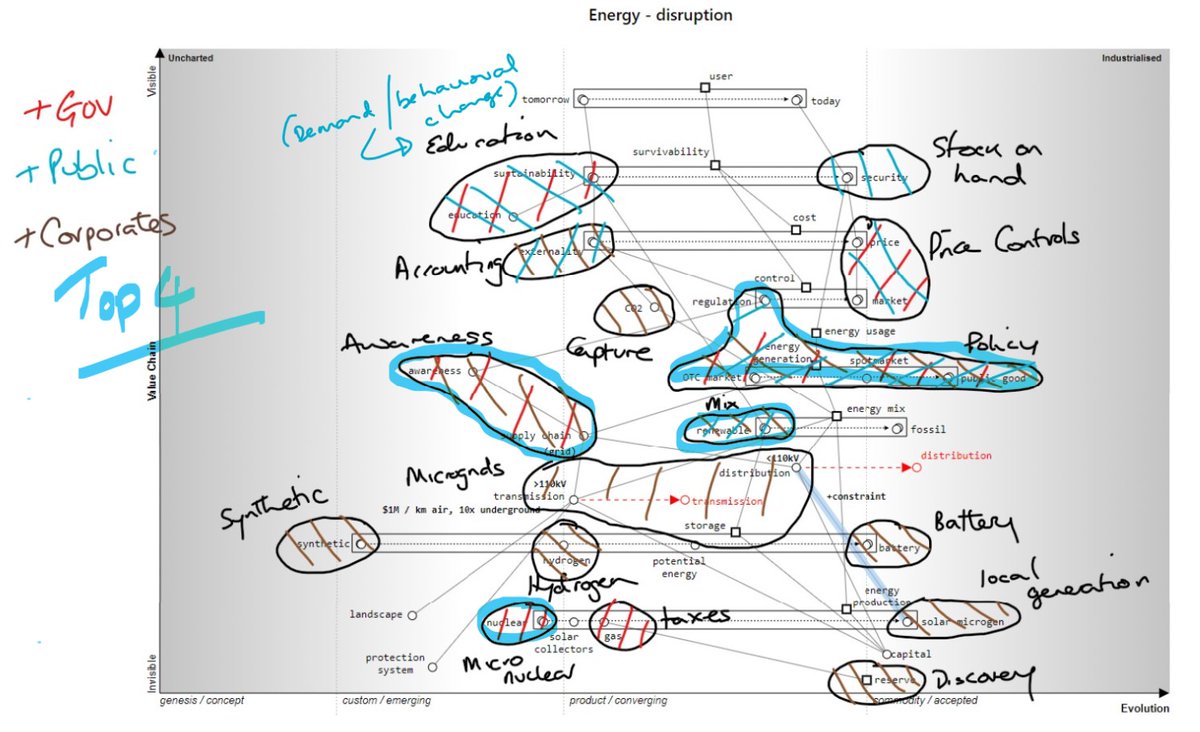 Energy - disruption
Uncharted
Industrialised
Visible
Value Chain
Invisible
+Gov
+Public
+Corporates
Top 4
(Demand / behavioural change)
user
tomorrow
today
Education
survivability
Stock on hand
sustainability
security
education
cost
Accounting
externality
price
Price Controls
control
regulation
market
CO2
Capture
energy usage
Awareness
energy generation
spotmarket
Policy
awareness
OTC market
public good
Mix
energy mix
renewable
fossil
supply chain (grid)
Microgrids
<110kV
distribution
distribution
>110kV
transmission
transmission
+constraint
$1M / km air, 10x underground
Synthetic
storage
Battery
synthetic
hydrogen
potential energy
battery
Hydrogen
local generation
energy production
landscape
nuclear
solar collectors
gas
taxes
solar microgen
protection system
Micro nuclear
capital
reserve
Discovery
genesis / concept
custom / emerging
product / converging
commodity / accepted
Evolution